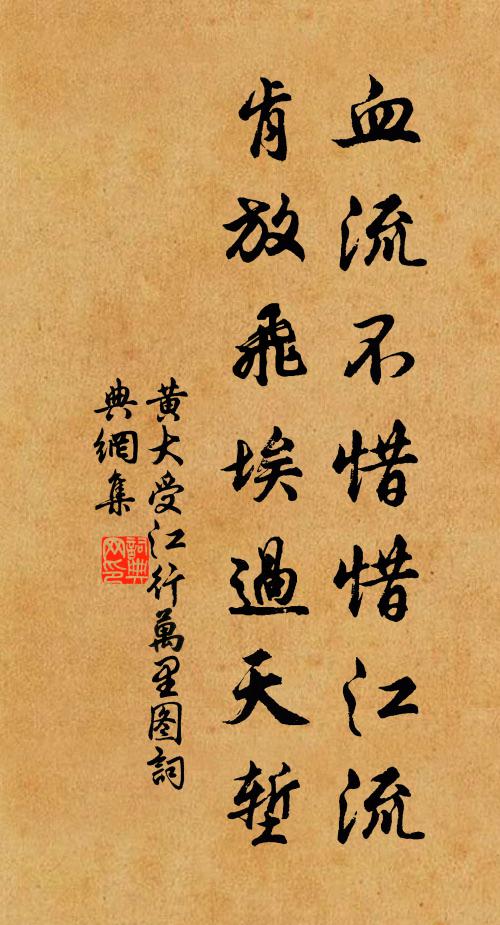 血流不惜惜江流
肯放飛埃過天塹
黃大受江行萬里图詞
典網集
詞典
网印